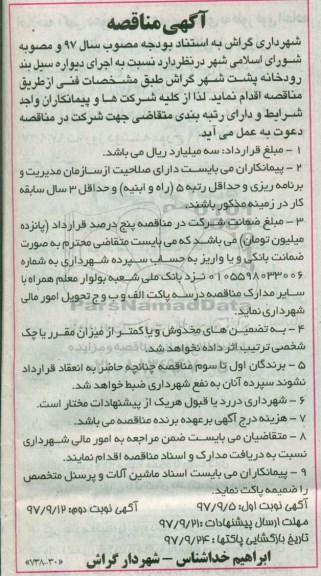 آگهی مناقصه
شهرداری گراش به استناد بودجه مصوب سال ۹۷ و مصوبه
شورای اسلامی شهر در نظر دارد نسبت به اجرای دیواره سیل بند
رودخانه پشت شهر گراش طبق مشخصات فنی از طریق
مناقصه اقدام نماید. لذا از کلیه شرکت ها و پیمانکاران واجد
شرایط و دارای رتبه بندی متقاضی جهت شرکت در مناقصه
دعوت به عمل می آید.
۱ - مبلغ قرارداد: سه میلیارد ریال می باشد.
۲ - پیمانکاران می بایست دارای صلاحیت از سازمان مدیریت و
برنامه ریزی و حداقل رتبه ۵ (راه و ابنیه) و حداقل ۳ سال سابقه
کار در زمینه مذکور باشند.
۳ - مبلغ ضمانت شرکت در مناقصه پنج درصد قرارداد (پانزده
میلیون تومان) می باشد که می بایست متقاضی محترم به صورت
ضمانت بانکی و یا واریز به حساب سپرده شهرداری به شماره
۰۱۰۵۵۹۸۰۳۳۰۰۶ نزد بانک ملی شعبه بولوار معلم همراه با
سایر مدارک مناقصه در سه پاکت الف و ب و ج تحویل امور مالی
شهرداری نماید.
۴ - به تضمین های مخدوش و یا کمتر از میزان مقرر یا چک
شخصی ترتیب اثر داده نخواهد شد.
۵ - برندگان اول تا سوم مناقصه چنانچه حاضر به انعقاد قرارداد
نشوند سپرده آنان به نفع شهرداری ضبط خواهد شد.
۶ - شهرداری در رد یا قبول هریک از پیشنهادات مختار است.
۷ - هزینه درج آگهی برعهده برنده مناقصه می باشد.
۸ - متقاضیان می بایست ضمن مراجعه به امور مالی شهرداری
نسبت به دریافت مدارک و اسناد مناقصه اقدام نمایند.
۹ - پیمانکاران می بایست اسناد ماشین آلات و پرسنل متخصص
را ضمیمه پاکت نماید.
آگهی نوبت اول: ۹۷/۹/۵ آگهی نوبت دوم: ۹۷/۹/۱۲
مهلت ارسال پیشنهادات: ۹۷/۹/۲۱
تاریخ بازگشایی پاکتها: ۹۷/۹/۲۴
ابراهیم خداشناس - شهردار گراش
«۷۳۸-۳۰»
ParsNamadData